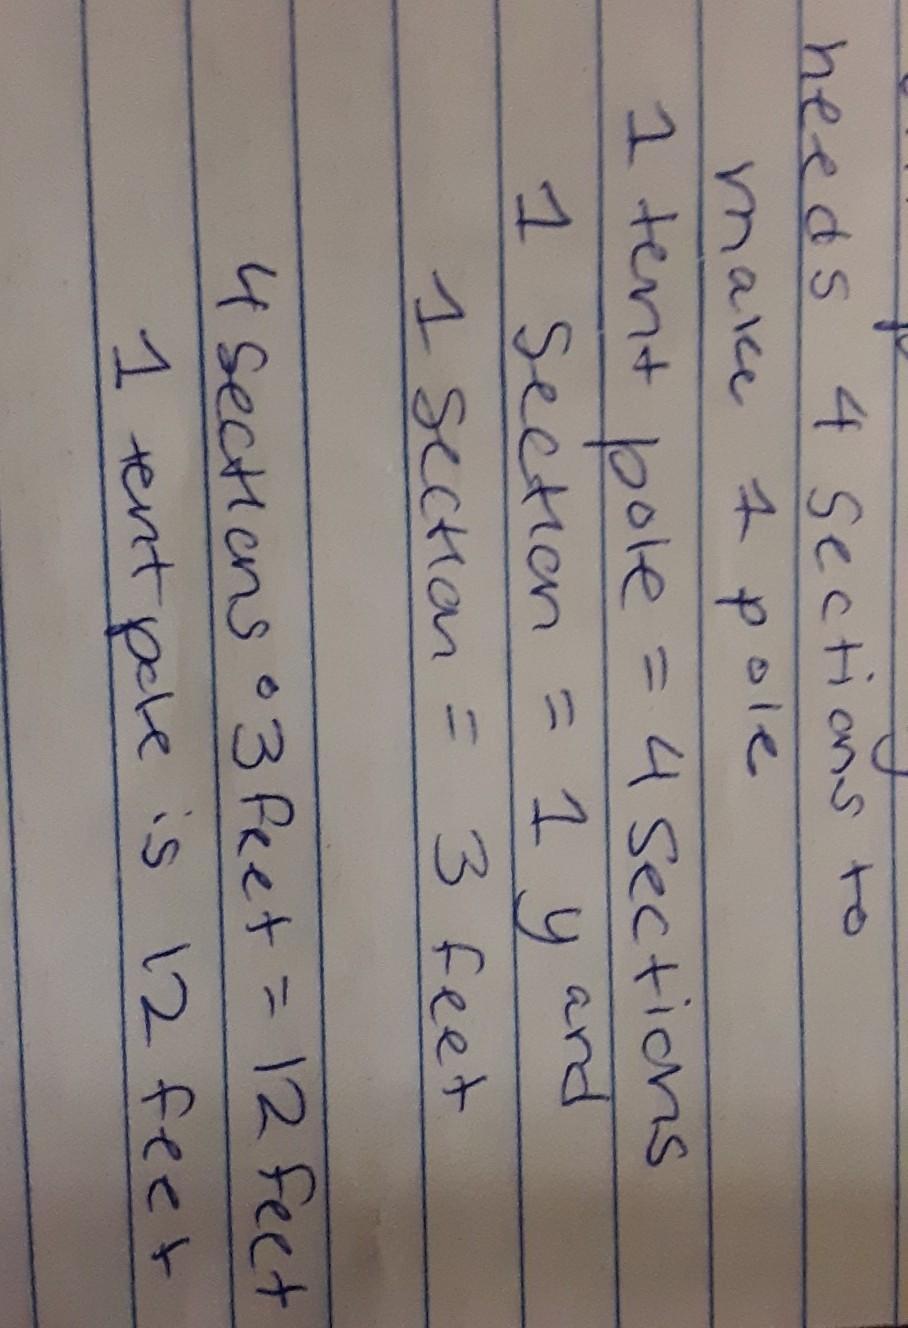 needs 4 sections to
make 1 pole
1 tent pole = 4 sections
1 section = 1 yard
1 section = 3 feet
4 sections • 3 feet = 12 feet
1 tent pole is 12 feet